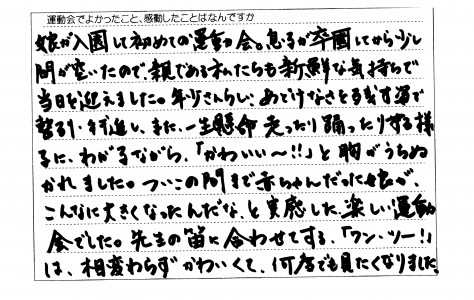 運動会でよかったこと、感動したことはなんですか
娘が入園して初めての運動会。息子が卒園してから少し
間が空いたので親である私たちも新鮮な気持ちで
当日を迎えました。年少さんらしい、あどけなさを残す姿で
整列・行進し、また、一生懸命走ったり踊ったりする様
子に、わが子ながら、「かわいい〜!!」と胸がうちぬ
かれました。ついこの間まで赤ちゃんだった娘が、
こんなに大きくなったんだな、と実感した、楽しい運動
会でした。先生の笛に合わせてする、「ワン・ツー!」
は、相変わらずかわいくて、何度でも見たくなりました。